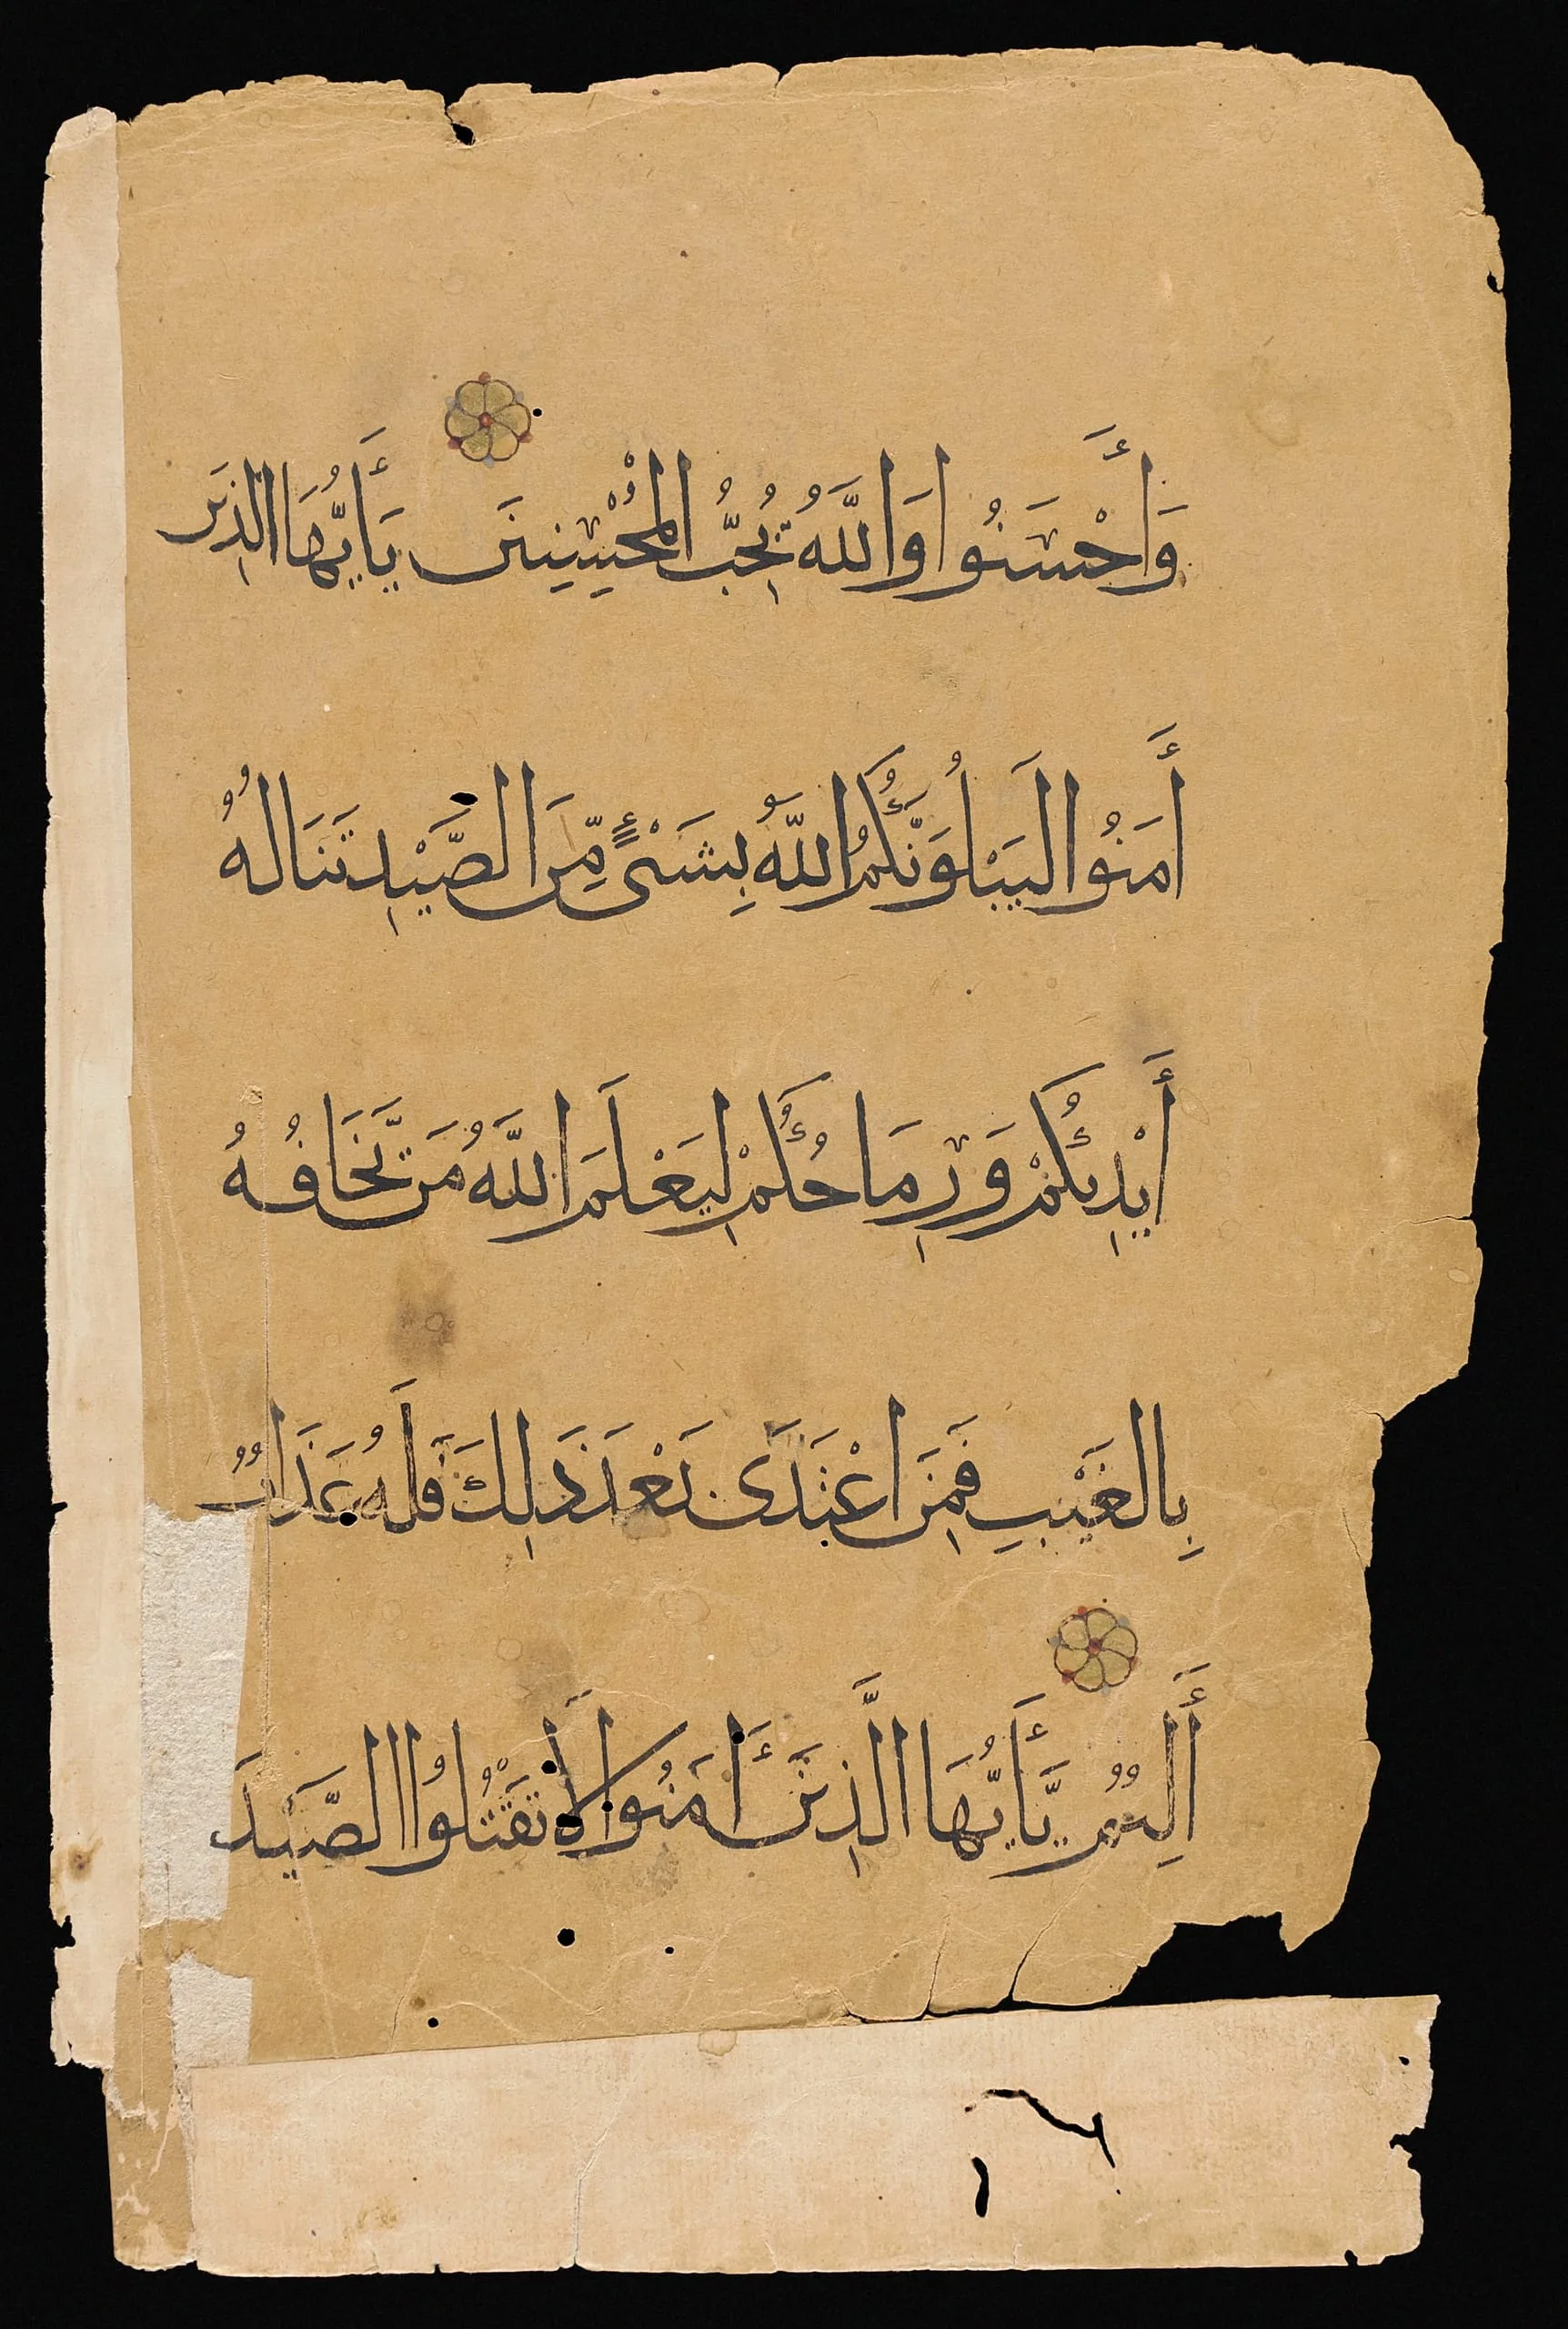 وَأَحْسَنُوا وَاللَّهُ يُحِبُّ الْمُحْسِنِينَ يَأَيُّهَا الَّذِينَ
أَمَنُوا لَيَبْلُوَنَّكُمُ اللَّهُ بِشَىْءٍ مِّنَ الصَّيْدِ تَنَالُهُ
أَيْدِيكُمْ وَرِمَاحُكُمْ لِيَعْلَمَ اللَّهُ مَن يَّخَافُهُ
بِالْغَيْبِ فَمَنِ اعْتَدَى بَعْدَ ذَلِكَ فَلَهُ عَذَابٌ
أَلِيمٌ يَّأَيُّهَا الَّذِينَ ءَامَنُوا لَا تَقْتُلُوا الصَّيْدَ